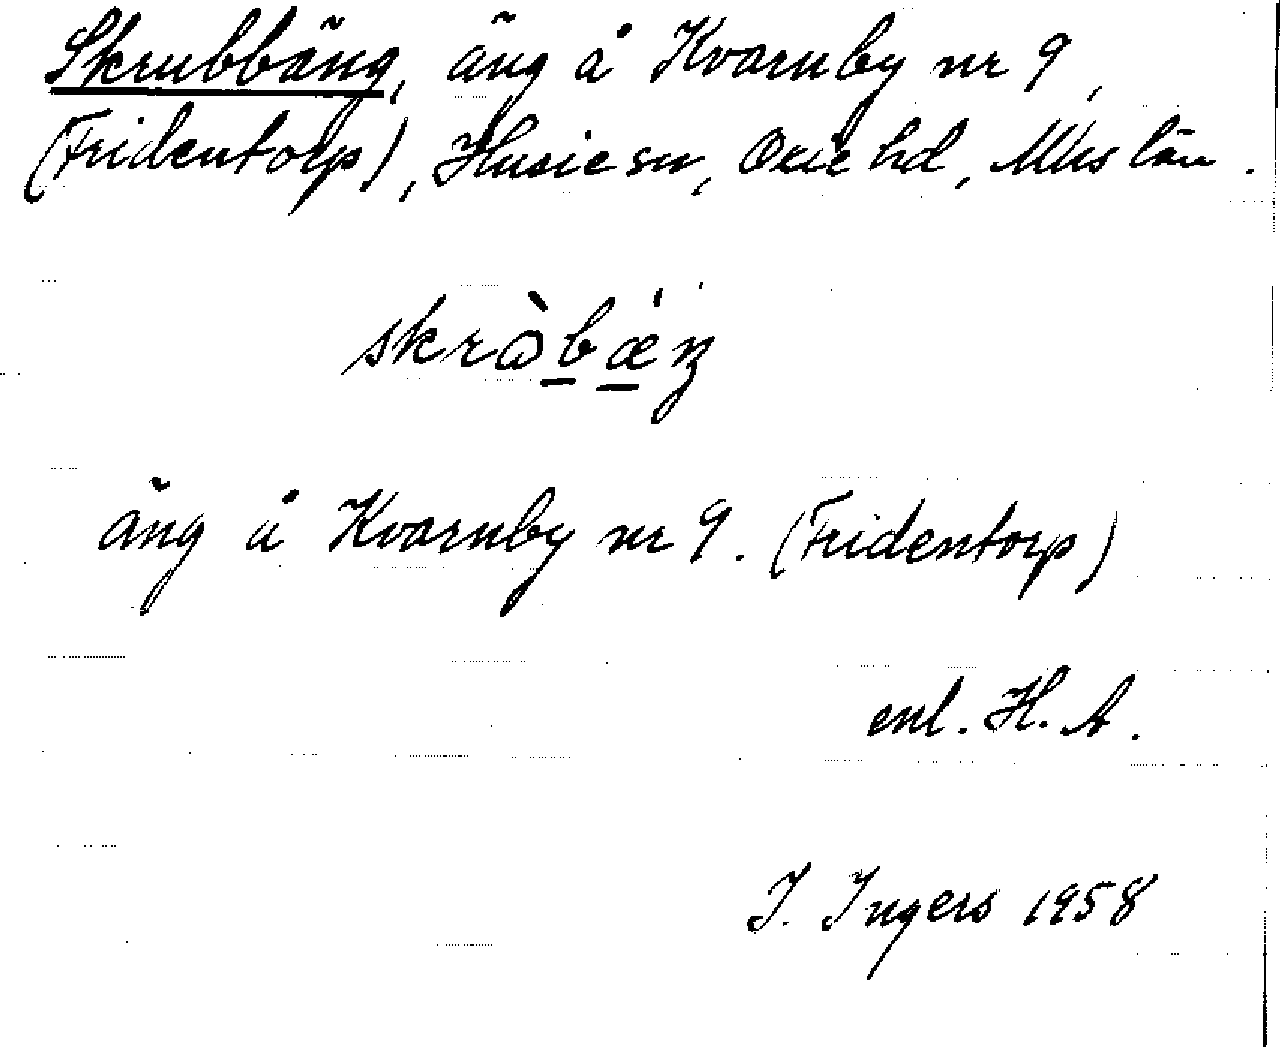 Skrubbäng, äng å Kvarnby nr 9,
(Fridentorp), Husie sn, Oxie hd, Mhs län.
skrɷ̀bǽŋ
äng å Kvarnby nr 9. (Fridentorp)
enl. H. A.
I. Ingers 1958